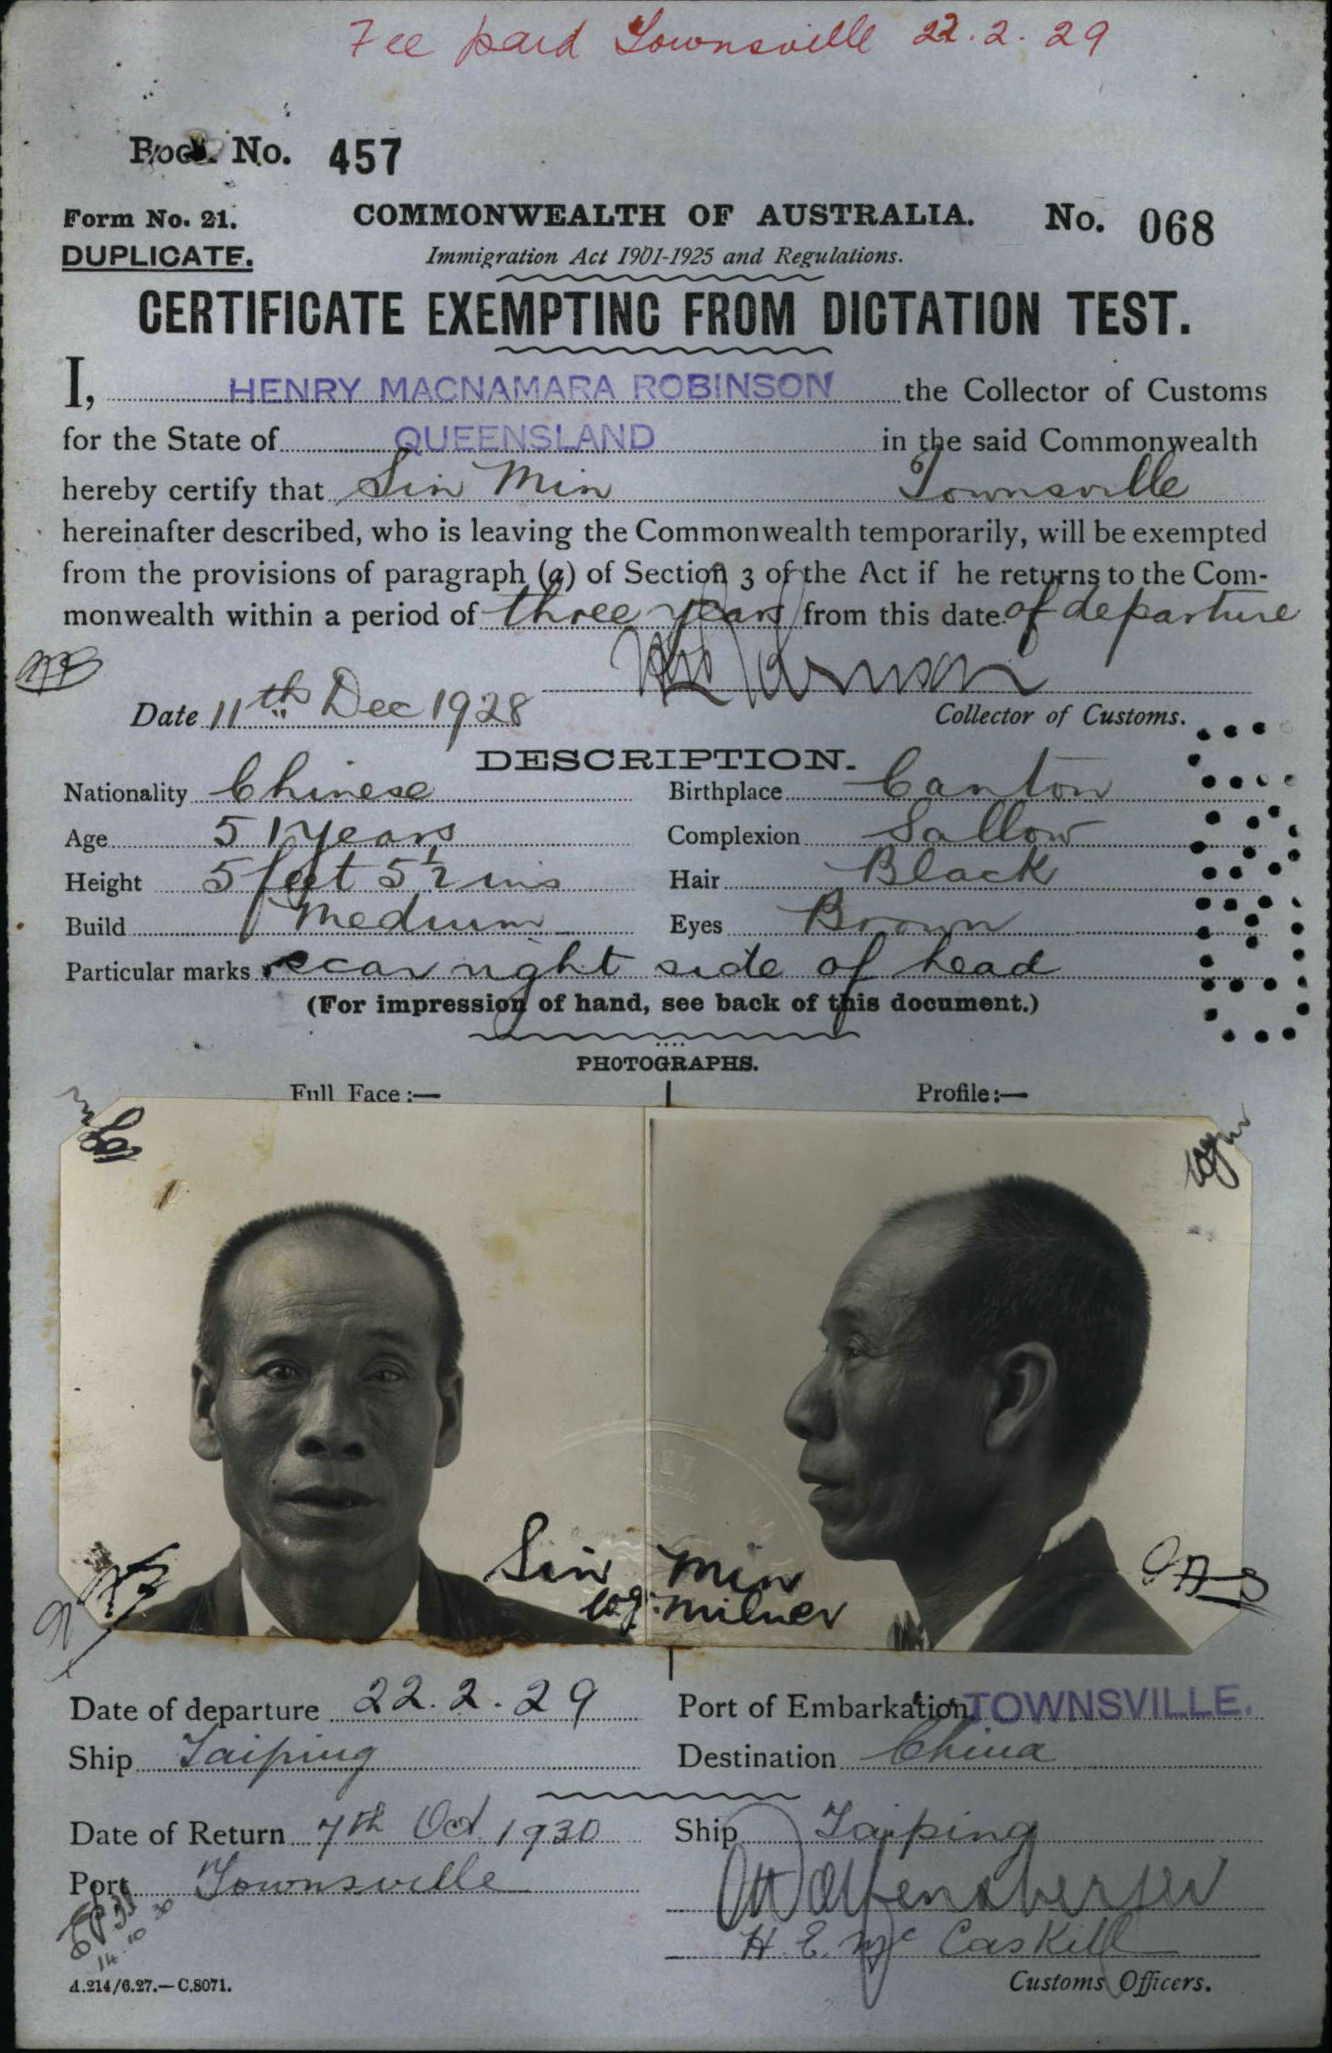 Fee paid Townsville 22.2.29
Book No. 457
Form No. 21.
COMMONWEALTH OF AUSTRALIA.
No. 068
DUPLICATE.
Immigration Act 1901-1925 and Regulations.
CERTIFICATE EXEMPTING FROM DICTATION TEST.
I, HENRY MACNAMARA ROBINSON the Collector of Customs
for the State of QUEENSLAND in the said Commonwealth
hereby certify that Sin Min Townsville
hereinafter described, who is leaving the Commonwealth temporarily, will be exempted
from the provisions of paragraph (a) of Section 3 of the Act if he returns to the Com-
monwealth within a period of three years from this date of departure
Date 11th Dec 1928
Collector of Customs.
DESCRIPTION.
Nationality Chinese Birthplace Canton
Age 51 years Complexion Sallow
Height 5 feet 5½ ins Hair Black
Build Medium Eyes Brown
Particular marks scar right side of head
(For impression of hand, see back of this document.)
PHOTOGRAPHS.
Full Face:— Profile:—
Sin Min
W.J. Milner
Date of departure 22.2.29 Port of Embarkation TOWNSVILLE.
Ship Taiping Destination China
Date of Return 7th Oct 1930 Ship Taiping
Port Townsville
H. E. McCaskill
14.10.30
A.214/6.27.—C.8071.
Customs Officers.